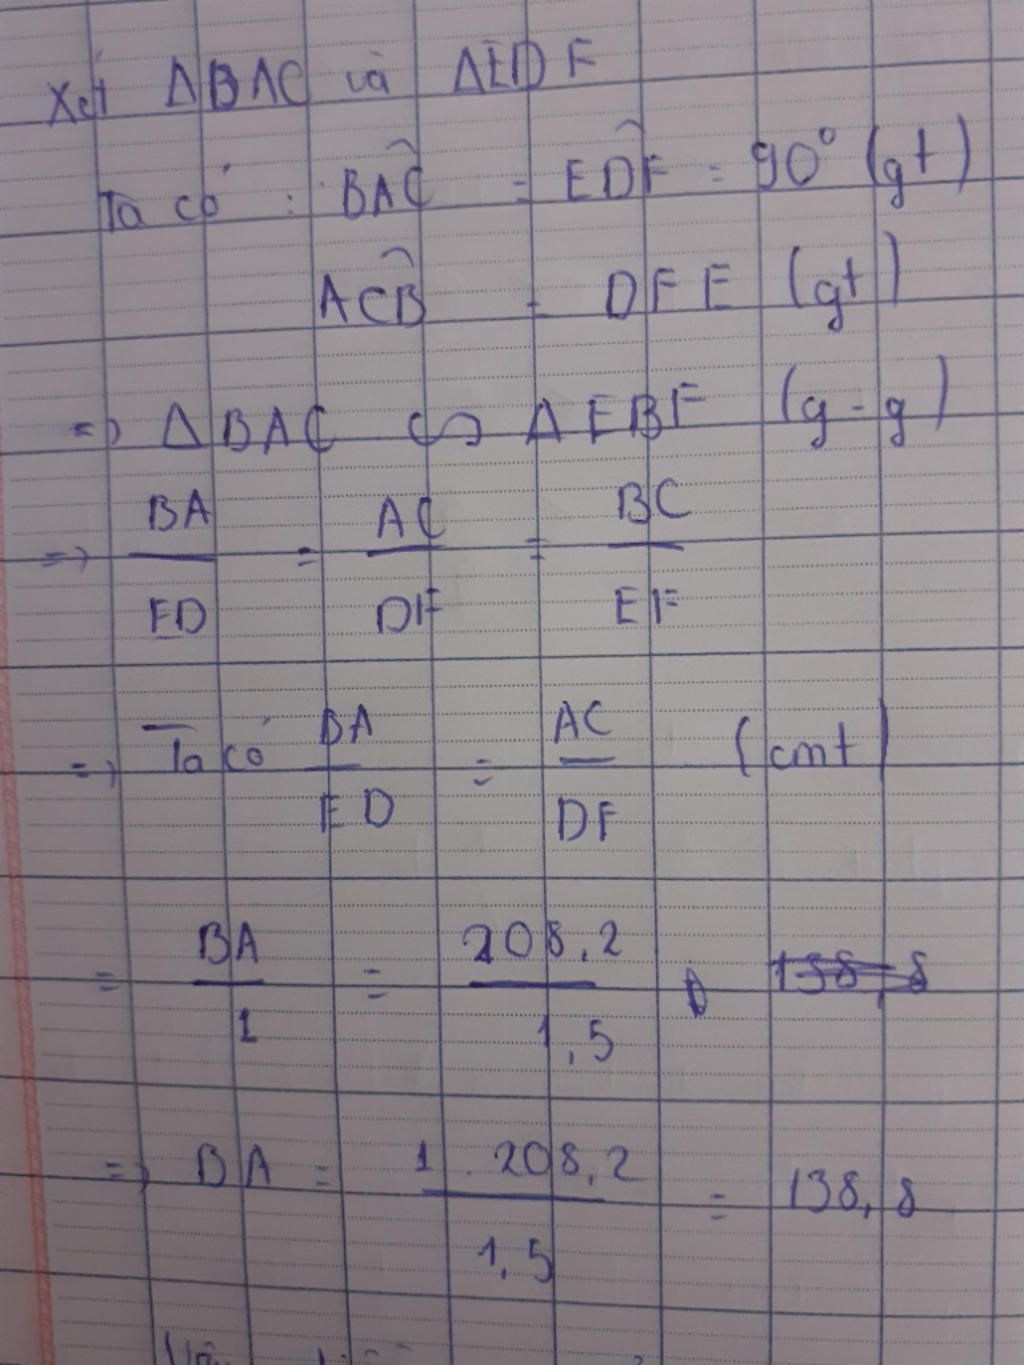 Xét ΔBAC và ΔEDF
Ta có : BAC = EDF = 90° (gt)
ACB = DFE (gt)
=> ΔBAC ∽ ΔEBF (g-g)
=> BA/ED = AC/DF = BC/EF
=> Ta có BA/ED = AC/DF (cmt)
= BA/1 = 208,2/1,5
=> BA = 1.208,2/1,5 = 138,8